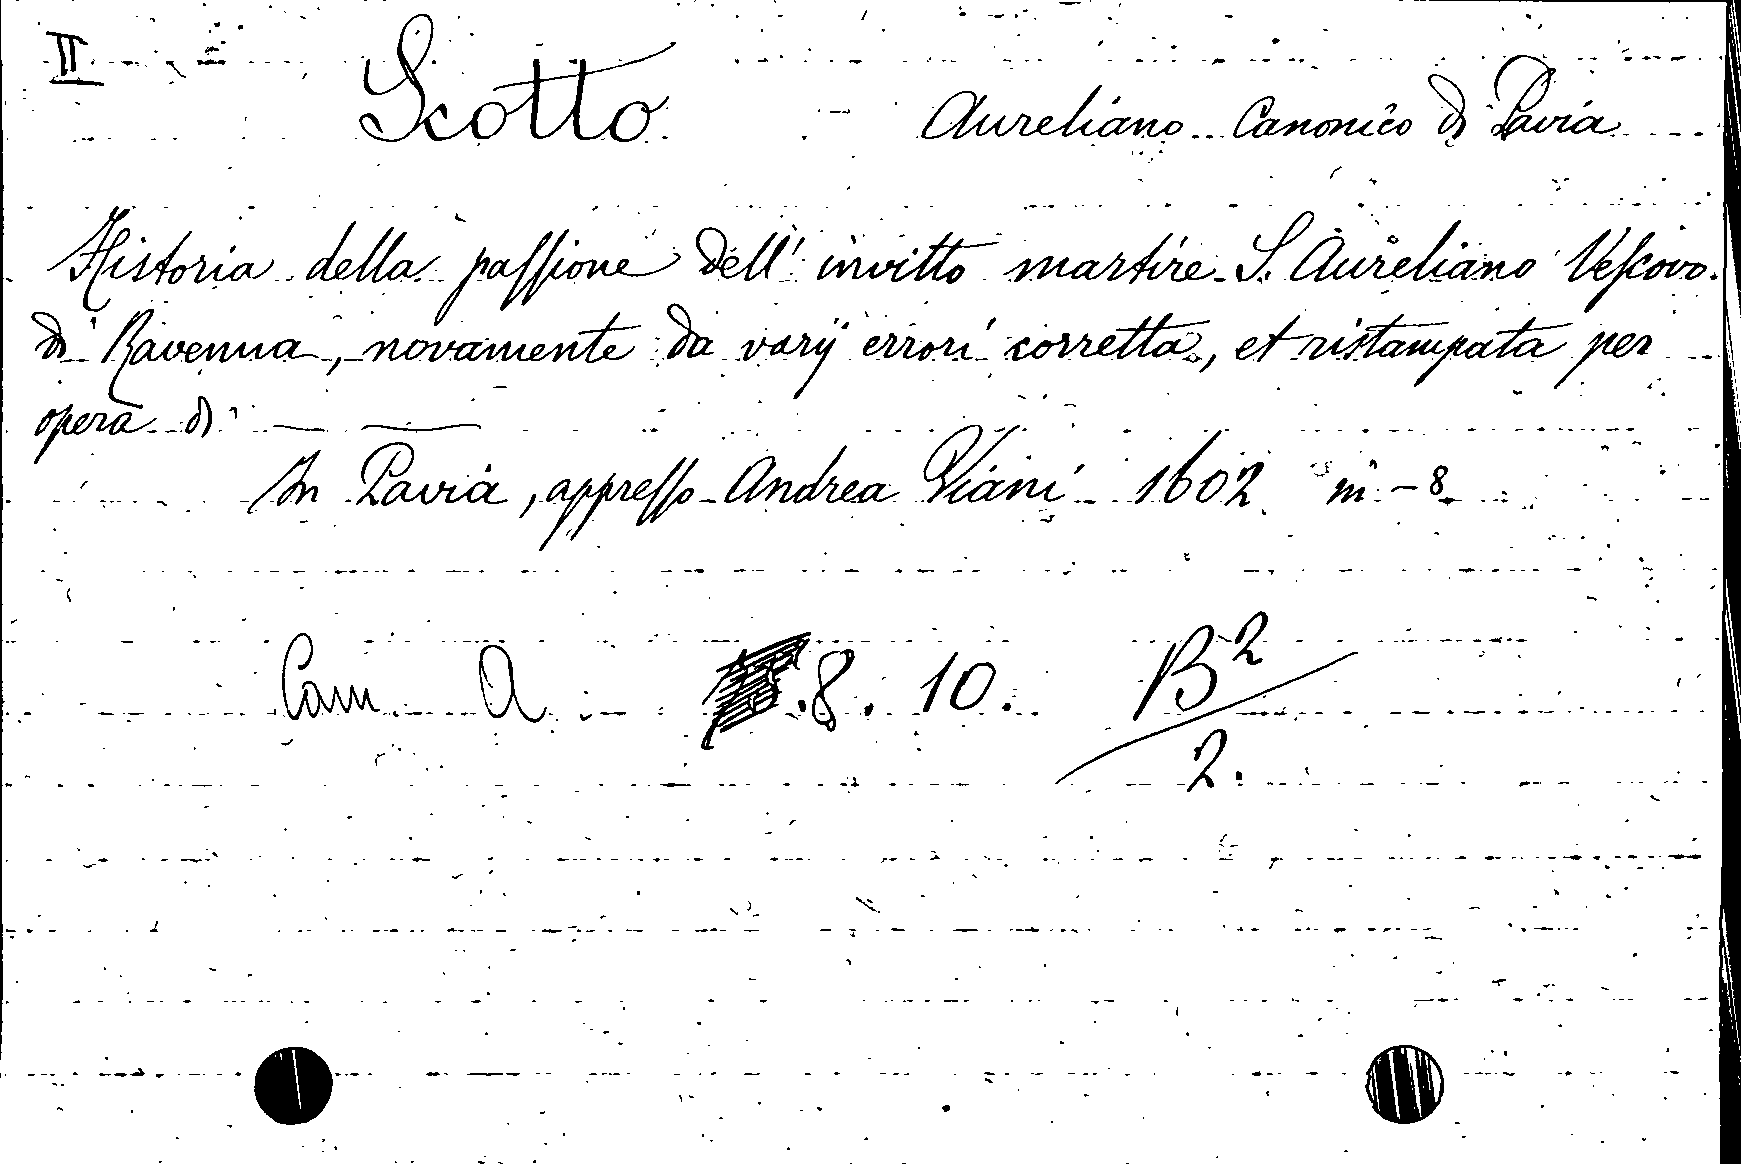 II Scotto Aureliano Canonico di Pavia
Historia della passione dell' invitto martire S. Aureliano Vescovo
di Ravenna, novamente da varij errori corretta, et ristampata per
opera di ——
In Pavia, appresso Andrea Viani 1602 in-8
Cam A .8. 10. B2
2.